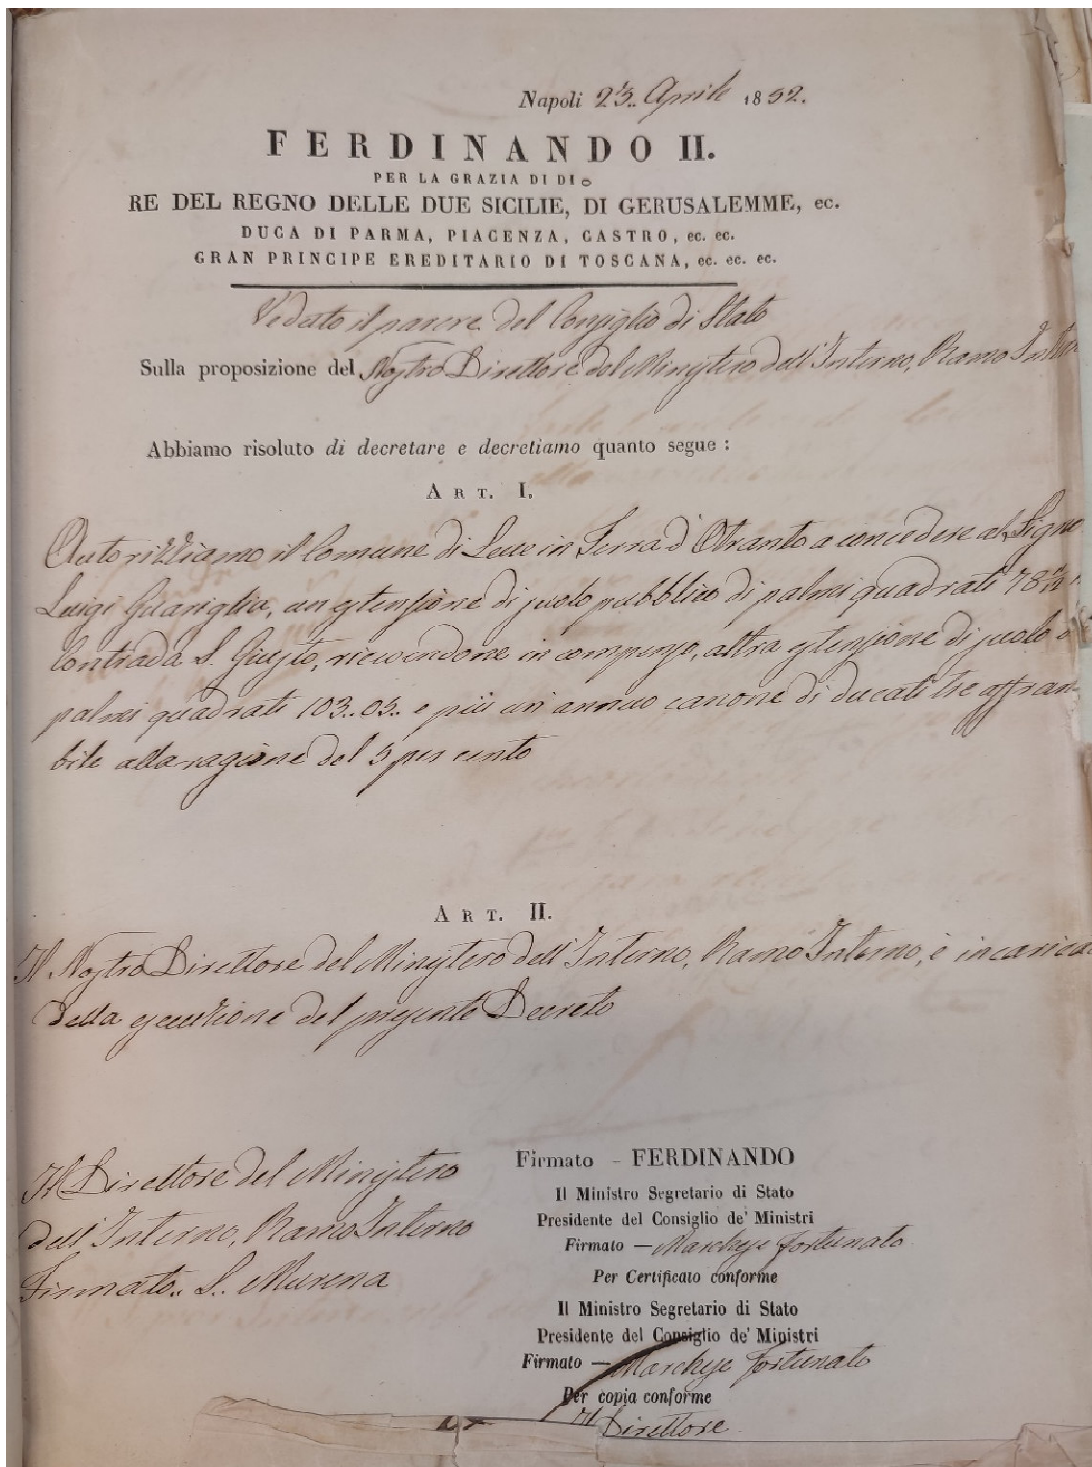 Napoli 23. Aprile 1852.
FERDINANDO II.
PER LA GRAZIA DI DIO
RE DEL REGNO DELLE DUE SICILIE, DI GERUSALEMME, ec.
DUCA DI PARMA, PIACENZA, CASTRO, ec. ec.
GRAN PRINCIPE EREDITARIO DI TOSCANA, ec. ec. ec.
Veduto il parere del Consiglio di Stato
Sulla proposizione del Nostro Direttore del Ministero dell'Interno, Ramo
Abbiamo risoluto di decretare e decretiamo quanto segue :
ART. I.
Autorizziamo il Comune di Lecce in Terra d'Otranto a concedere al
Luigi Guariglia, un estensione di suolo pubblico di palmi quadrati
Contrada S. Giusto, ricevendone in compenso, altra estensione di suolo
palmi quadrati 103..05.. e più un annuo canone di ducati tre affran
bile alla ragione del 5 per cento
ART. II.
Il Nostro Direttore del Ministero dell'Interno, Ramo Interno, è
della esecuzione del presente Decreto
Il Direttore del Ministero
dell'Interno, Ramo Interno
Firmato.. S.. Murena
Firmato - FERDINANDO
Il Ministro Segretario di Stato
Presidente del Consiglio de' Ministri
Firmato — Marchese Fortunato
Per Certificato conforme
Il Ministro Segretario di Stato
Presidente del Consiglio de' Ministri
Firmato — Marchese Fortunato
Per copia conforme
Il Direttore